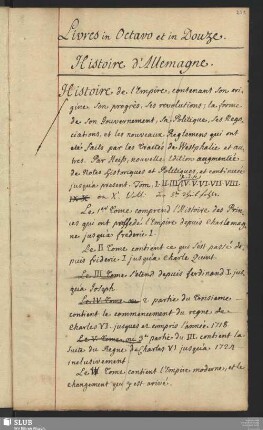 Livres in Octavo et in Douze.
Histoire d'Allemagne.
Histoire de l'Empire, contenant son ori
gine son progrès, ses revolutions; la forme
de son Gouvernement, sa Politique, ses Nego
ciations, et les nouveaux Reglemens qui ont
eté faits par les Traités de Westphalie et au
tres. Par Heiss, nouvelle Edition augmentée
de Notes Historiques et Politiques, et continuée
jusqu'a present. Tom. I-II-III-IV-V-VI-VII-VIII.
IX-X. ou X. Voll.
Le 1er Tome comprend l'Histoire des Prin
ces qui ont possedé l'Empire depuis Charlemag
ne jusqu'a Frederic I.
Le II Tome contient ce qui s'est passé de
puis Frideric I jusqu'a Charle Quint.
Le III Tome s'etend depuis Ferdinand I. jus
qu'a Joseph.
Le IV Tome ou 2 partie du Troisieme
contient le commencement du regne de
Charles VI. jusques et compris l'année 1718.
Le V Tome ou 3e partie du III. contient la
suite du Regne de Charles VI jusqu'a 1724
inclusivement.
Le IV Tome contient l'Empire moderne, et le
changement qui y est arrivé.
SLUB